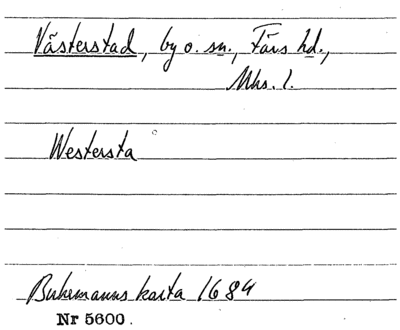 Västerstad, by o. sn., Färs hd.,
Mhs. l.
Westersta
Buhrmanns karta 1684
Nr 5600.